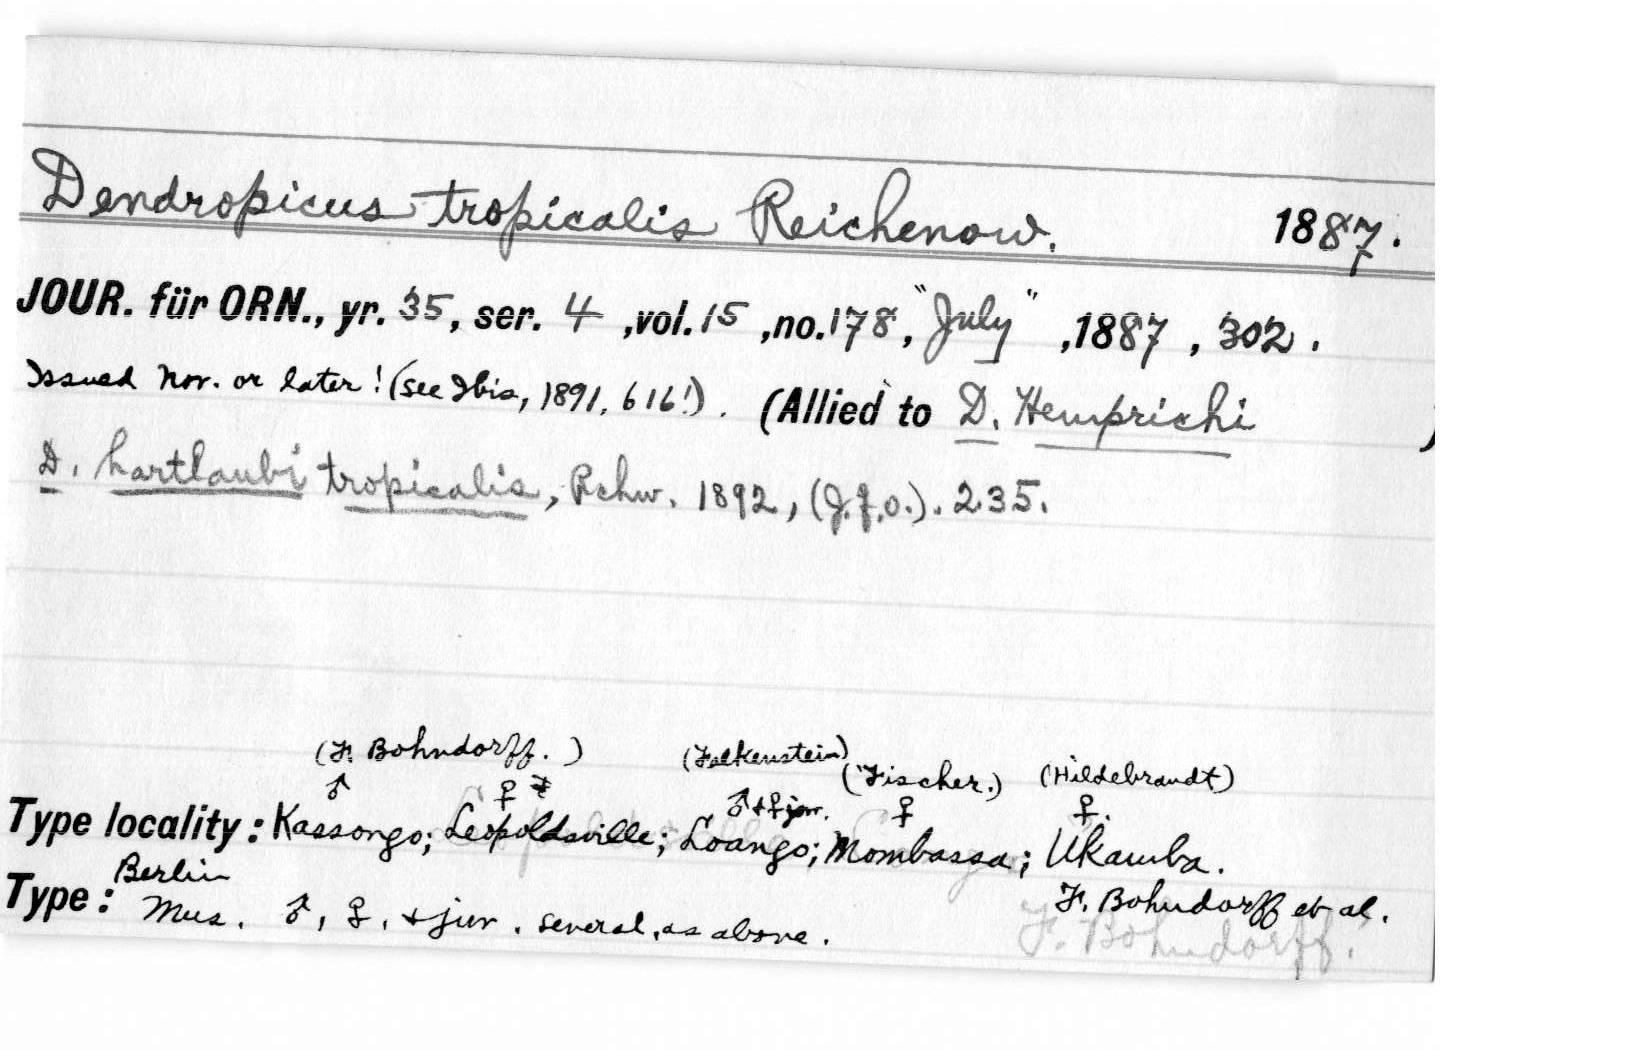 Dendropicus tropicalis Reichenow. 1887.
JOUR. für ORN., yr. 35, ser. 4, vol. 15, no. 178, "July", 1887, 302.
Issued Nov. or later! (see Ibis, 1891, 616!). (Allied to D. Hemprichi )
D. hartlaubi tropicalis, Rchw. 1892, (J.f.o.). 235.
(F. Bohndorff.) (Falkenstein) (Fischer.) (Hildebrandt)
♂ ♀ ♂ + ♀ juv. ♀ ♀.
Type locality: Kassongo; Leopoldsville; Loango; Mombassa; Ukamba.
Type: Berlin Mus. ♂, ♀, + juv. several, as above. F. Bohndorff et al.
F. Bohndorff.